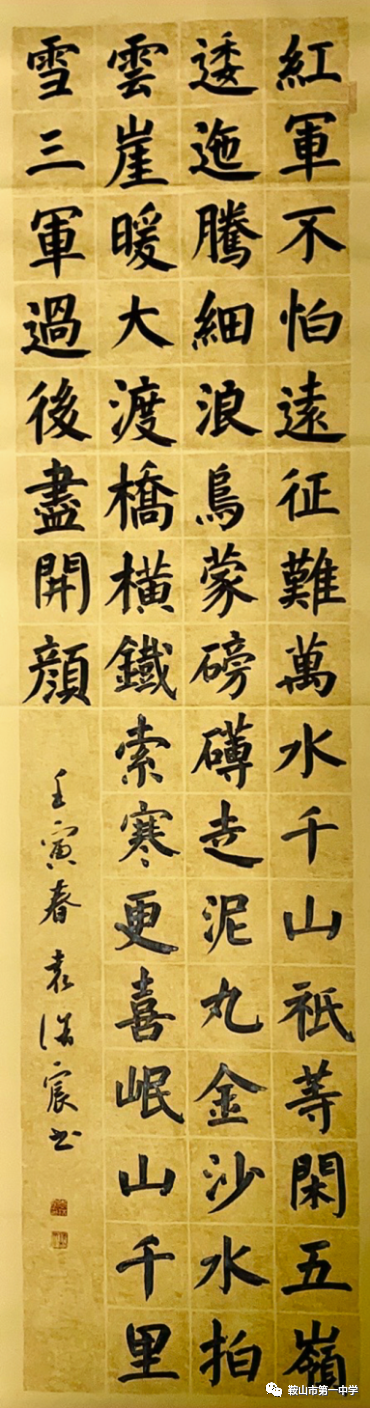 紅軍不怕遠征難萬水千山祇等閑五嶺
逶迤騰細浪烏蒙磅礡走泥丸金沙水拍
雲崖暖大渡橋橫鐵索寒更喜岷山千里
雪三軍過後盡開顏
壬寅春袁宸书
鞍山市第一中学